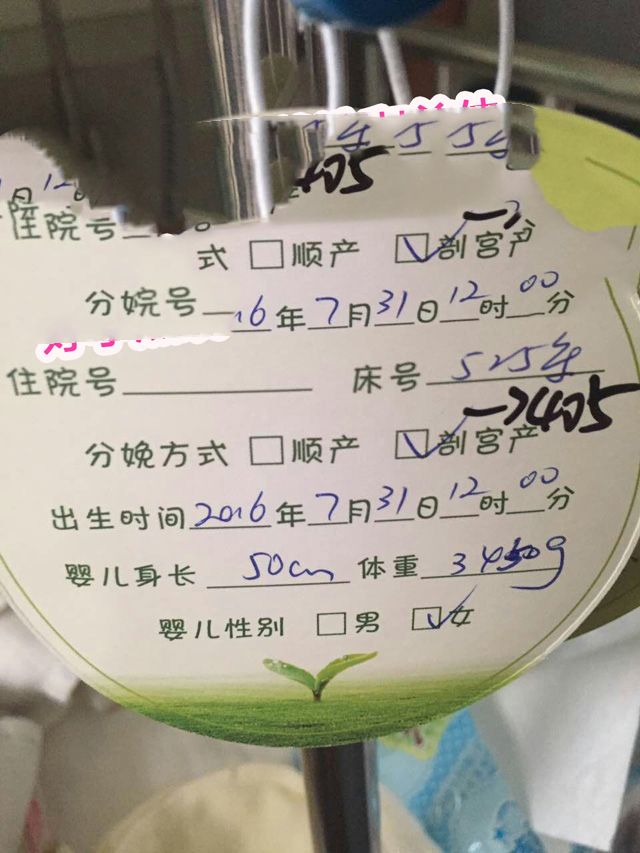 405
住院号
式 □顺产 ☑剖宫产
分娩号 16年7月31日12时00分
住院号 床号 525
→405
分娩方式 □顺产 ☑剖宫产
出生时间2016年7月31日12时00分
婴儿身长 50cm 体重 3450g
婴儿性别 □男 ☑女